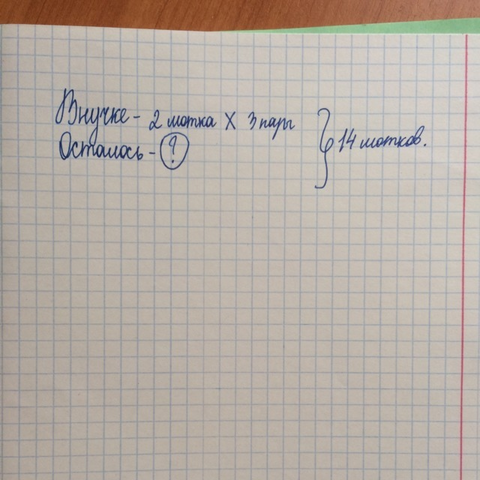 Внучке - 2 мотка X 3 пары
Осталось - ?
14 мотков.